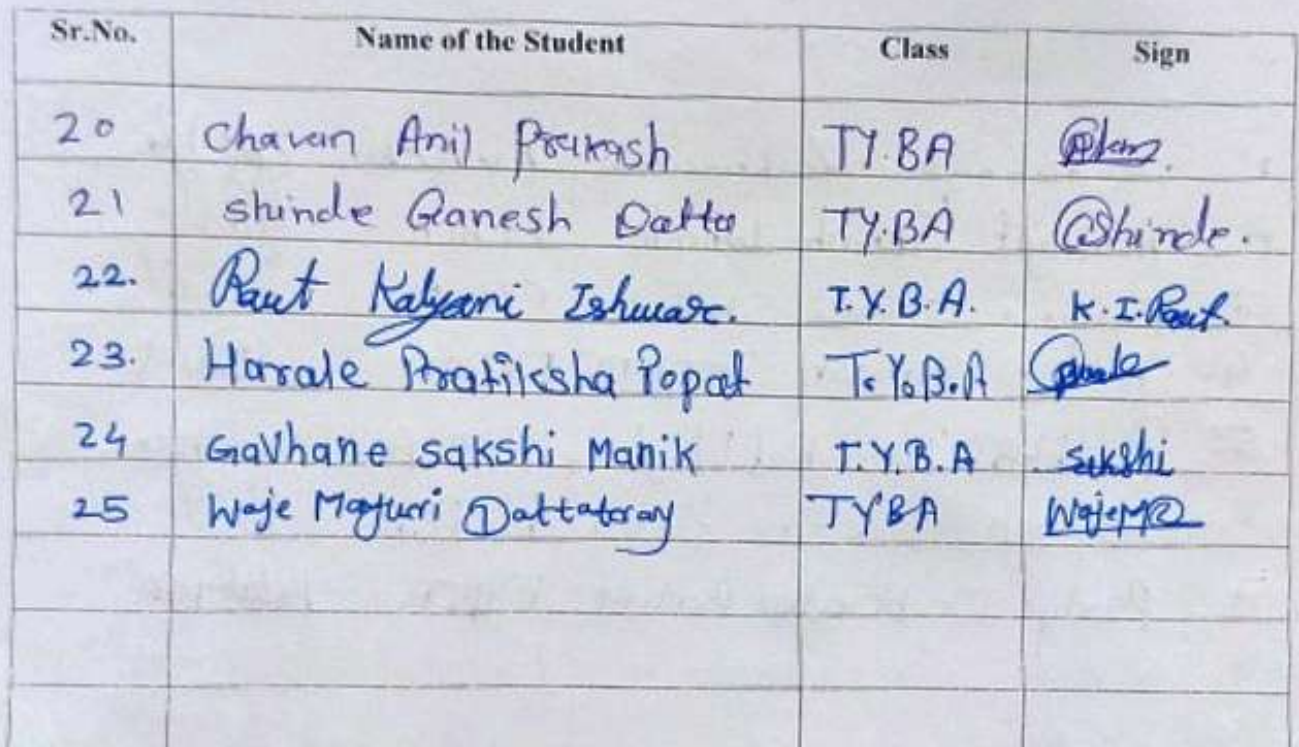 Sr.No. Name of the Student Class Sign
20 Chavan Anil Prakash TY.BA
21 shinde Ganesh Datta TY.BA Shinde.
22. Raut Kalyani Ishwar. T.Y.B.A. K.I.Raut.
23. Harale Pratiksha Popat T.Y.B.A
24 Gavhane sakshi Manik T.Y.B.A sakshi
25 Waje Mayuri Dattatray TYBA WajeMD